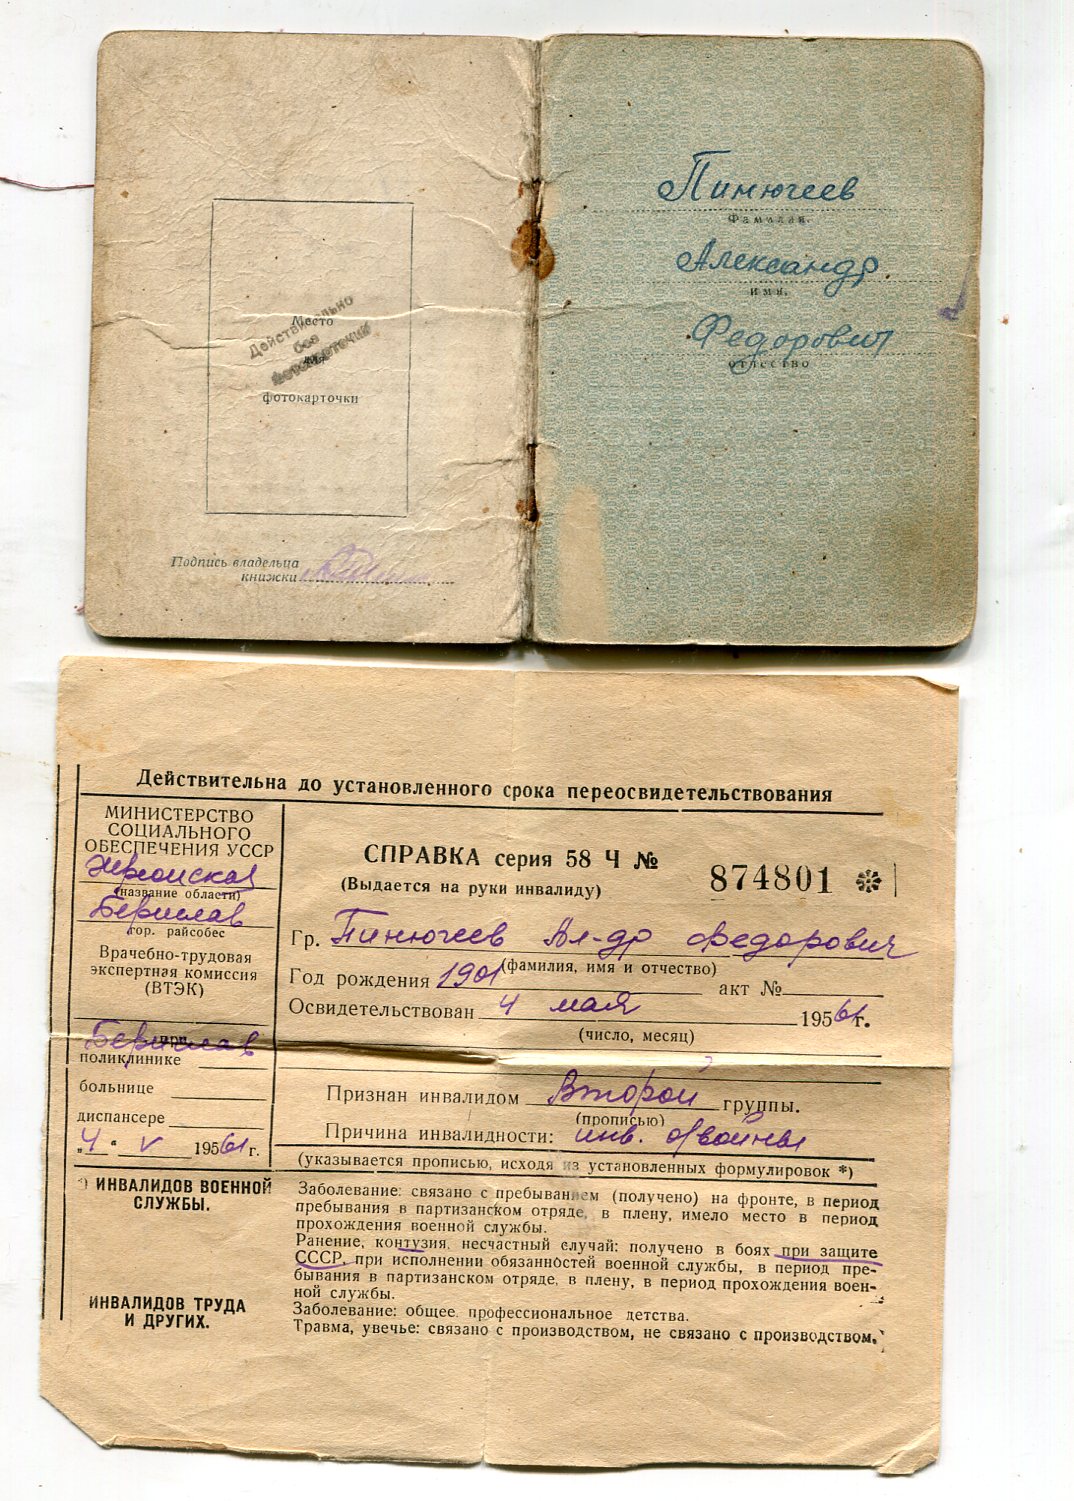 Место
для
фотокарточки
Действительно
без
фотокарточки
Подпись владельца
книжки
Пинючеев
Фамилия.
Александр
имя.
Федорович
отчество
Действительна до установленного срока переосвидетельствования
МИНИСТЕРСТВО
СОЦИАЛЬНОГО
ОБЕСПЕЧЕНИЯ УССР
Херсонская
(название области)
Берислав
гор. райсобес
Врачебно-трудовая
экспертная комиссия
(ВТЭК)
при
Берислав
поликлинике
больнице
диспансере
„4“ V 19561 г.
СПРАВКА серия 58 Ч № 874801
(Выдается на руки инвалиду)
Гр. Пинючеев Ал-др Федорович
(фамилия, имя и отчество)
Год рождения 1901 акт №
Освидетельствован 4 мая 19561 г.
(число, месяц)
Признан инвалидом Второй группы.
(прописью)
Причина инвалидности: инв. от войны
(указывается прописью, исходя из установленных формулировок *)
*) ИНВАЛИДОВ ВОЕННОЙ
СЛУЖБЫ.
Заболевание: связано с пребыванием (получено) на фронте, в период
пребывания в партизанском отряде, в плену, имело место в период
прохождения военной службы.
Ранение, контузия, несчастный случай: получено в боях при защите
СССР, при исполнении обязанностей военной службы, в период пре-
бывания в партизанском отряде, в плену, в период прохождения воен-
ной службы.
ИНВАЛИДОВ ТРУДА
И ДРУГИХ.
Заболевание: общее, профессиональное детства.
Травма, увечье: связано с производством, не связано с производством.